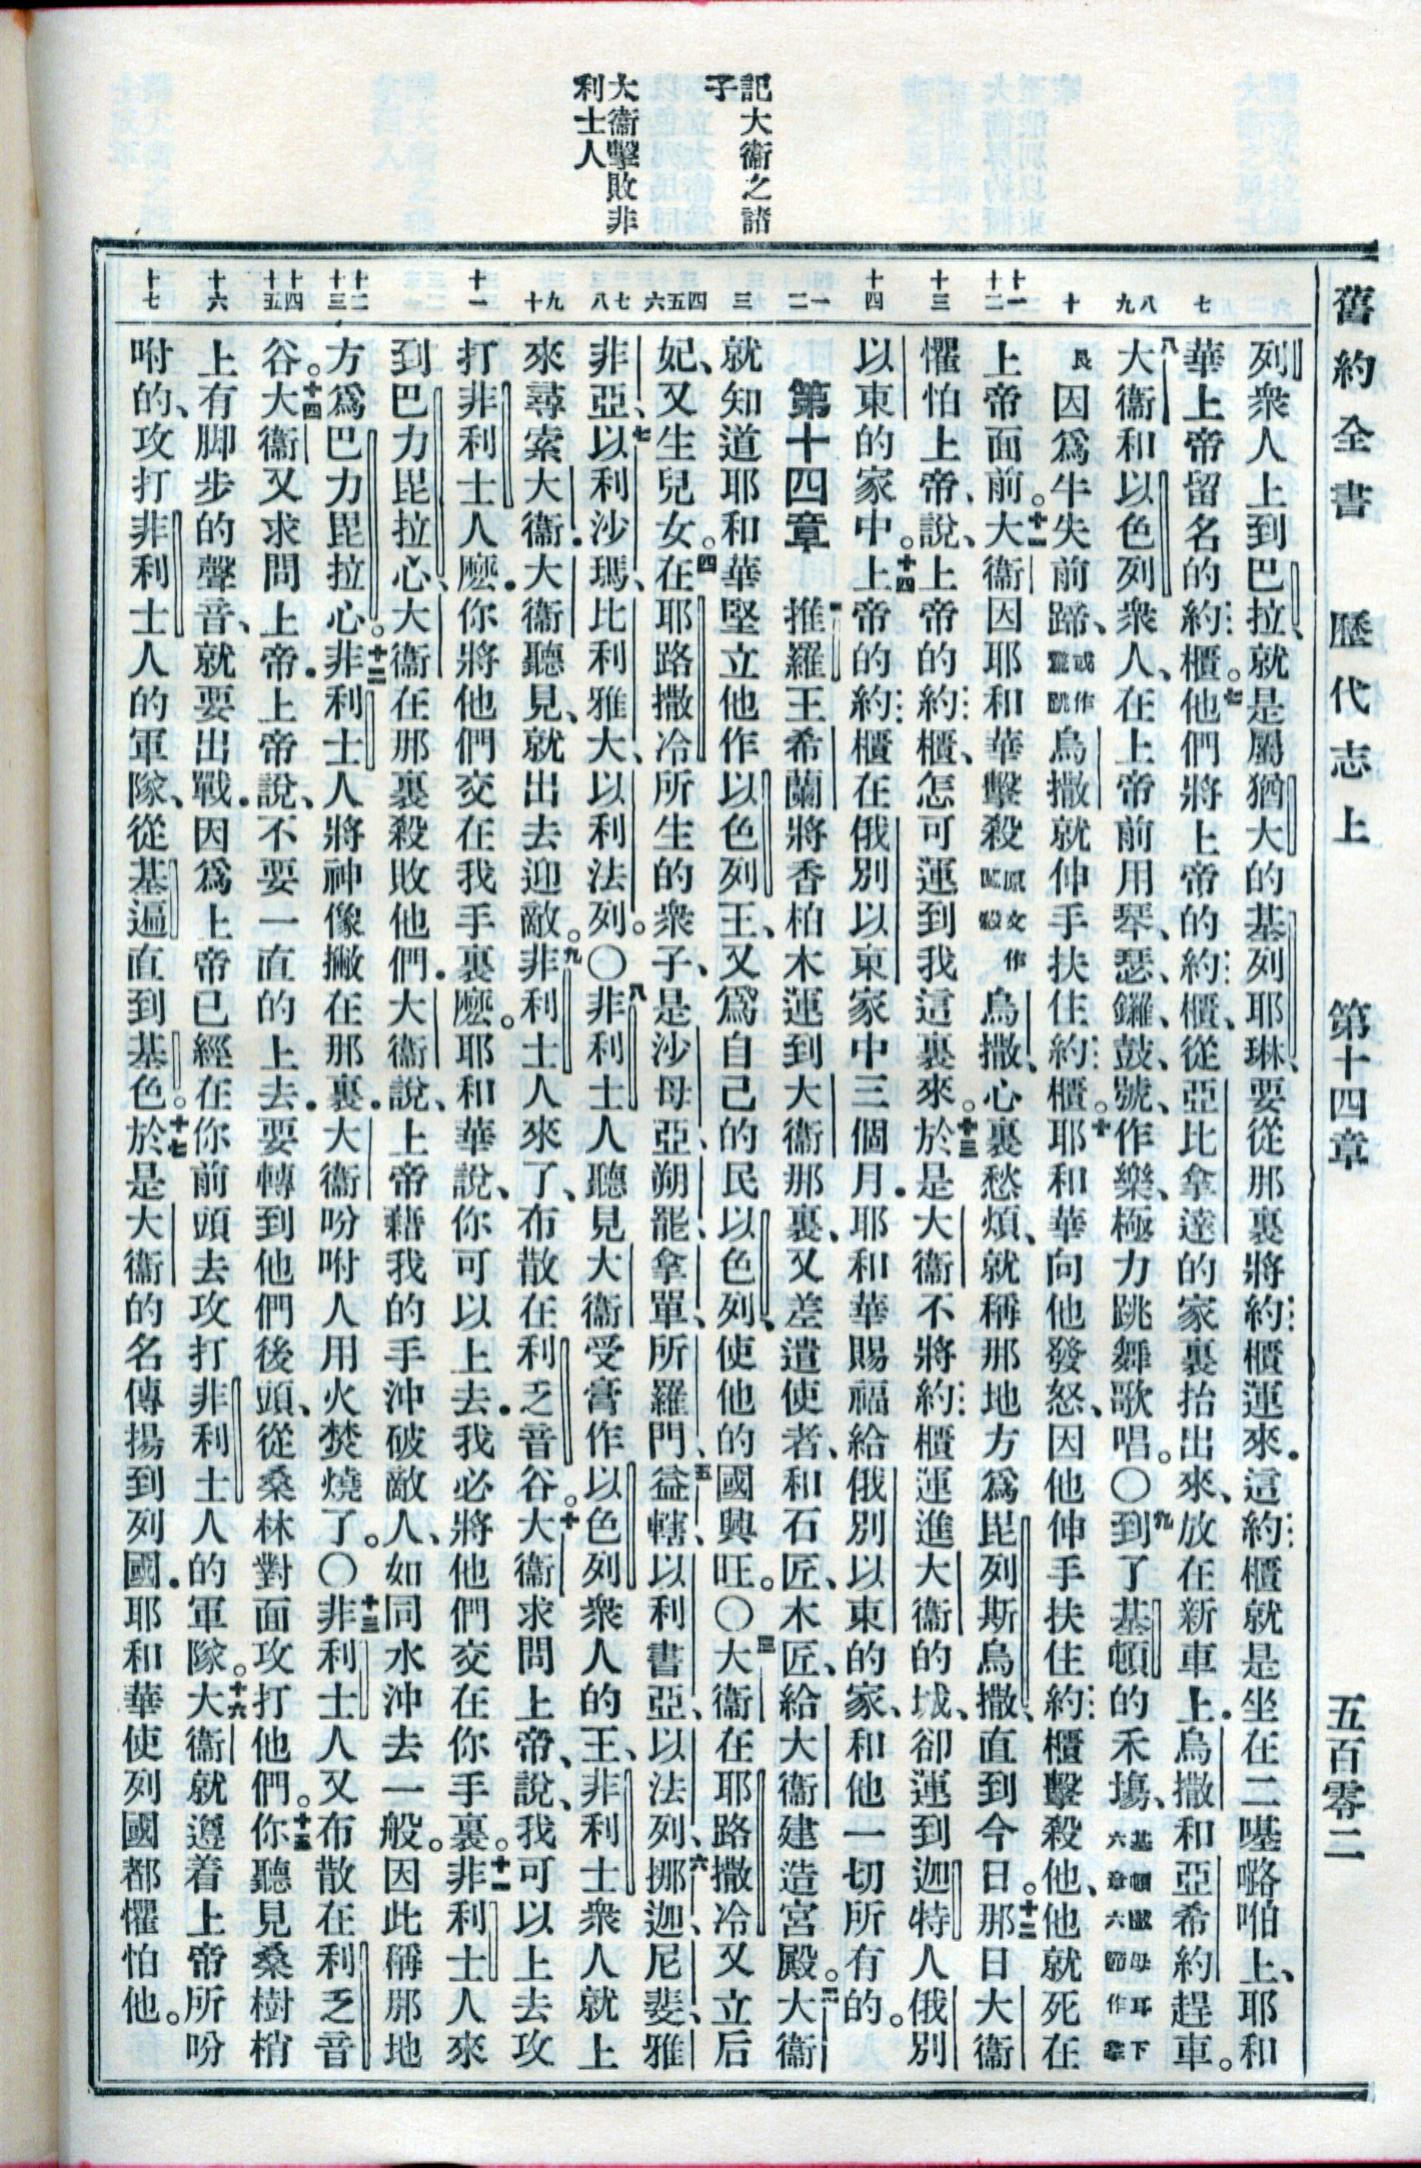 舊約全書 歷代志上 第十四章 五百零二
記大衞之諸
子
大衞擊敗非
利士人
七
八
九
十
十一
十二
十三
十四
一
二
三
四
五
六
七
八
九
十
十一
十二
十三
十四
十五
十六
十七
列衆人上到巴拉、就是屬猶大的基列耶琳、要從那裏將約櫃運來．這約櫃就是坐在二𠼻嚕咱上、耶和
華上帝留名的約櫃。七他們將上帝的約櫃、從亞比拿達的家裏抬出來、放在新車上．烏撒和亞希約趕車。
八大衞和以色列衆人、在上帝前用琴、瑟、鑼、鼓、號、作樂、極力跳舞歌唱。〇九到了基頓的禾塲、基頓撒母耳下六章六節作拿
艮因爲牛失前蹄、或作驚跳烏撒就伸手扶住約櫃。十耶和華向他發怒、因他伸手扶住約櫃擊殺他、他就死在
上帝面前。十一大衞因耶和華擊殺原文作闖毀烏撒、心裏愁煩、就稱那地方爲毘列斯烏撒、直到今日。十二那日大衞
懼怕上帝、說、上帝的約櫃、怎可運到我這裏來。十三於是大衞不將約櫃運進大衞的城、卻運到迦特人俄別
以東的家中。十四上帝的約櫃在俄別以東家中三個月．耶和華賜福給俄別以東的家、和他一切所有的。
第十四章 一推羅王希蘭將香柏木運到大衞那裏、又差遣使者、和石匠、木匠、給大衞建造宮殿。二大衞
就知道耶和華堅立他作以色列王、又爲自己的民以色列、使他的國興旺。〇三大衞在耶路撒冷又立后
妃、又生兒女。四在耶路撒冷所生的衆子、是沙母亞、朔罷、拿單、所羅門、五益轄、以利書亞、以法列、六挪迦、尼斐、雅
非亞、七以利沙瑪、比利雅大、以利法列。〇八非利士人聽見大衞受膏作以色列衆人的王、非利士衆人就上
來尋索大衞．大衞聽見、就出去迎敵。九非利士人來了、布散在利乏音谷。十大衞求問上帝、說、我可以上去攻
打非利士人麽．你將他們交在我手裏麽。耶和華說、你可以上去．我必將他們交在你手裏。十一非利士人來
到巴力毘拉心、大衞在那裏殺敗他們．大衞說、上帝藉我的手沖破敵人、如同水沖去一般。因此稱那地
方爲巴力毘拉心。十二非利士人將神像撇在那裏．大衞吩咐人用火焚燒了。〇十三非利士人又布散在利乏音
谷。十四大衞又求問上帝．上帝說、不要一直的上去．要轉到他們後頭、從桑林對面攻打他們。十五你聽見桑樹梢
上有脚步的聲音、就要出戰．因爲上帝已經在你前頭去攻打非利士人的軍隊。十六大衞就遵着上帝所吩
咐的、攻打非利士人的軍隊、從基遍直到基色。十七於是大衞的名傳揚到列國．耶和華使列國都懼怕他。